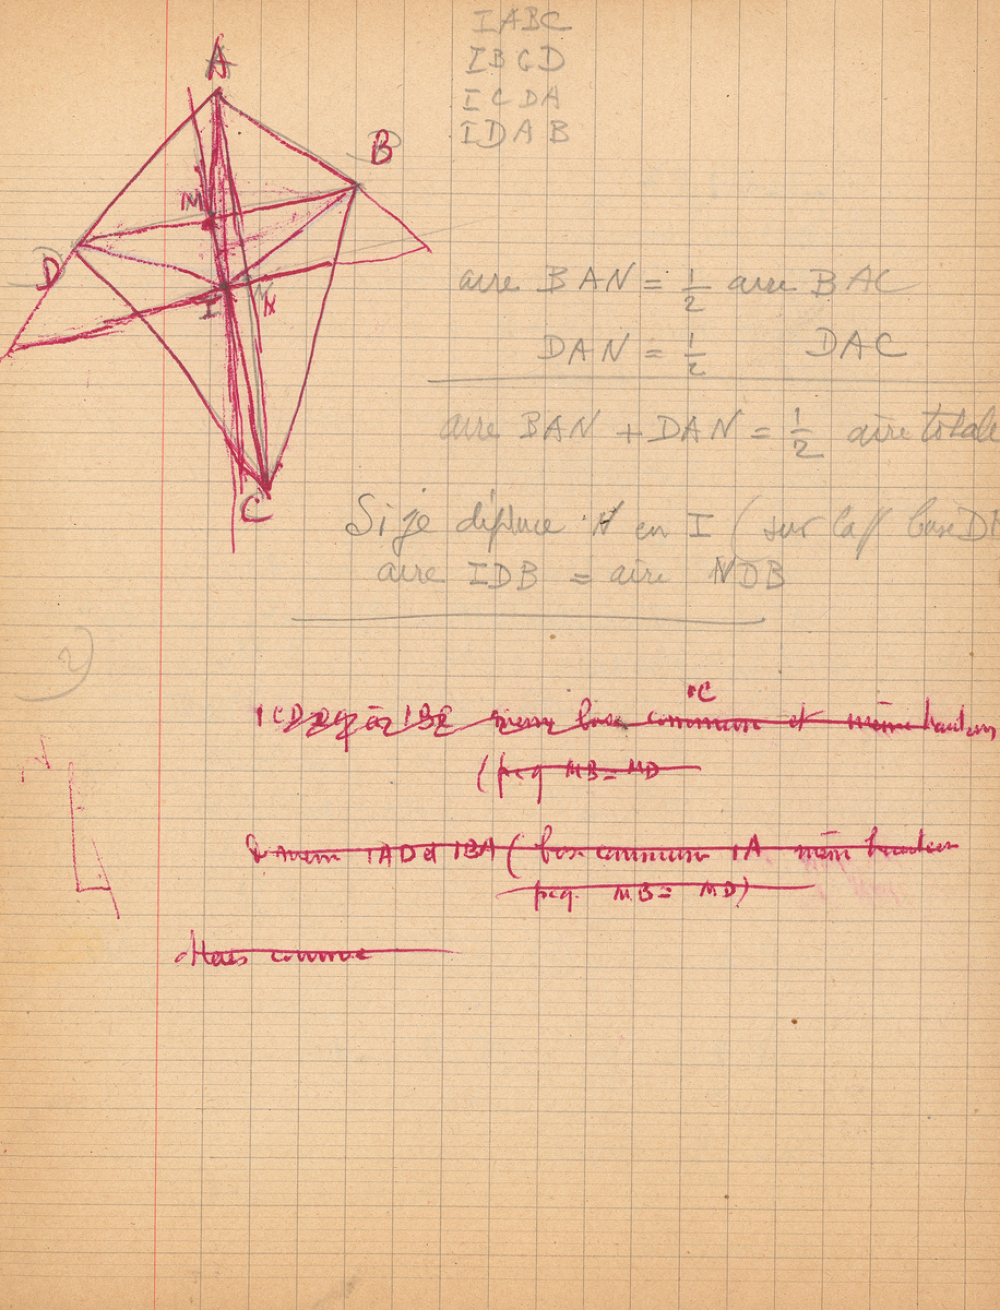 IABC
IBCD
ICDA
IDAB
A
B
M
D
I
N
C
aire BAN = 1/2 aire BAC
DAN = 1/2 DAC
aire BAN + DAN = 1/2 aire totale
Si je déplace N en I ( sur la // base DB
aire IDB = aire NDB
2)
IC
ICD IBC même base commune et même hauteur
( pcq MB = MD
IAD et IBA ( base commune IA même hauteur
pcq. MB = MD)
Mais comme